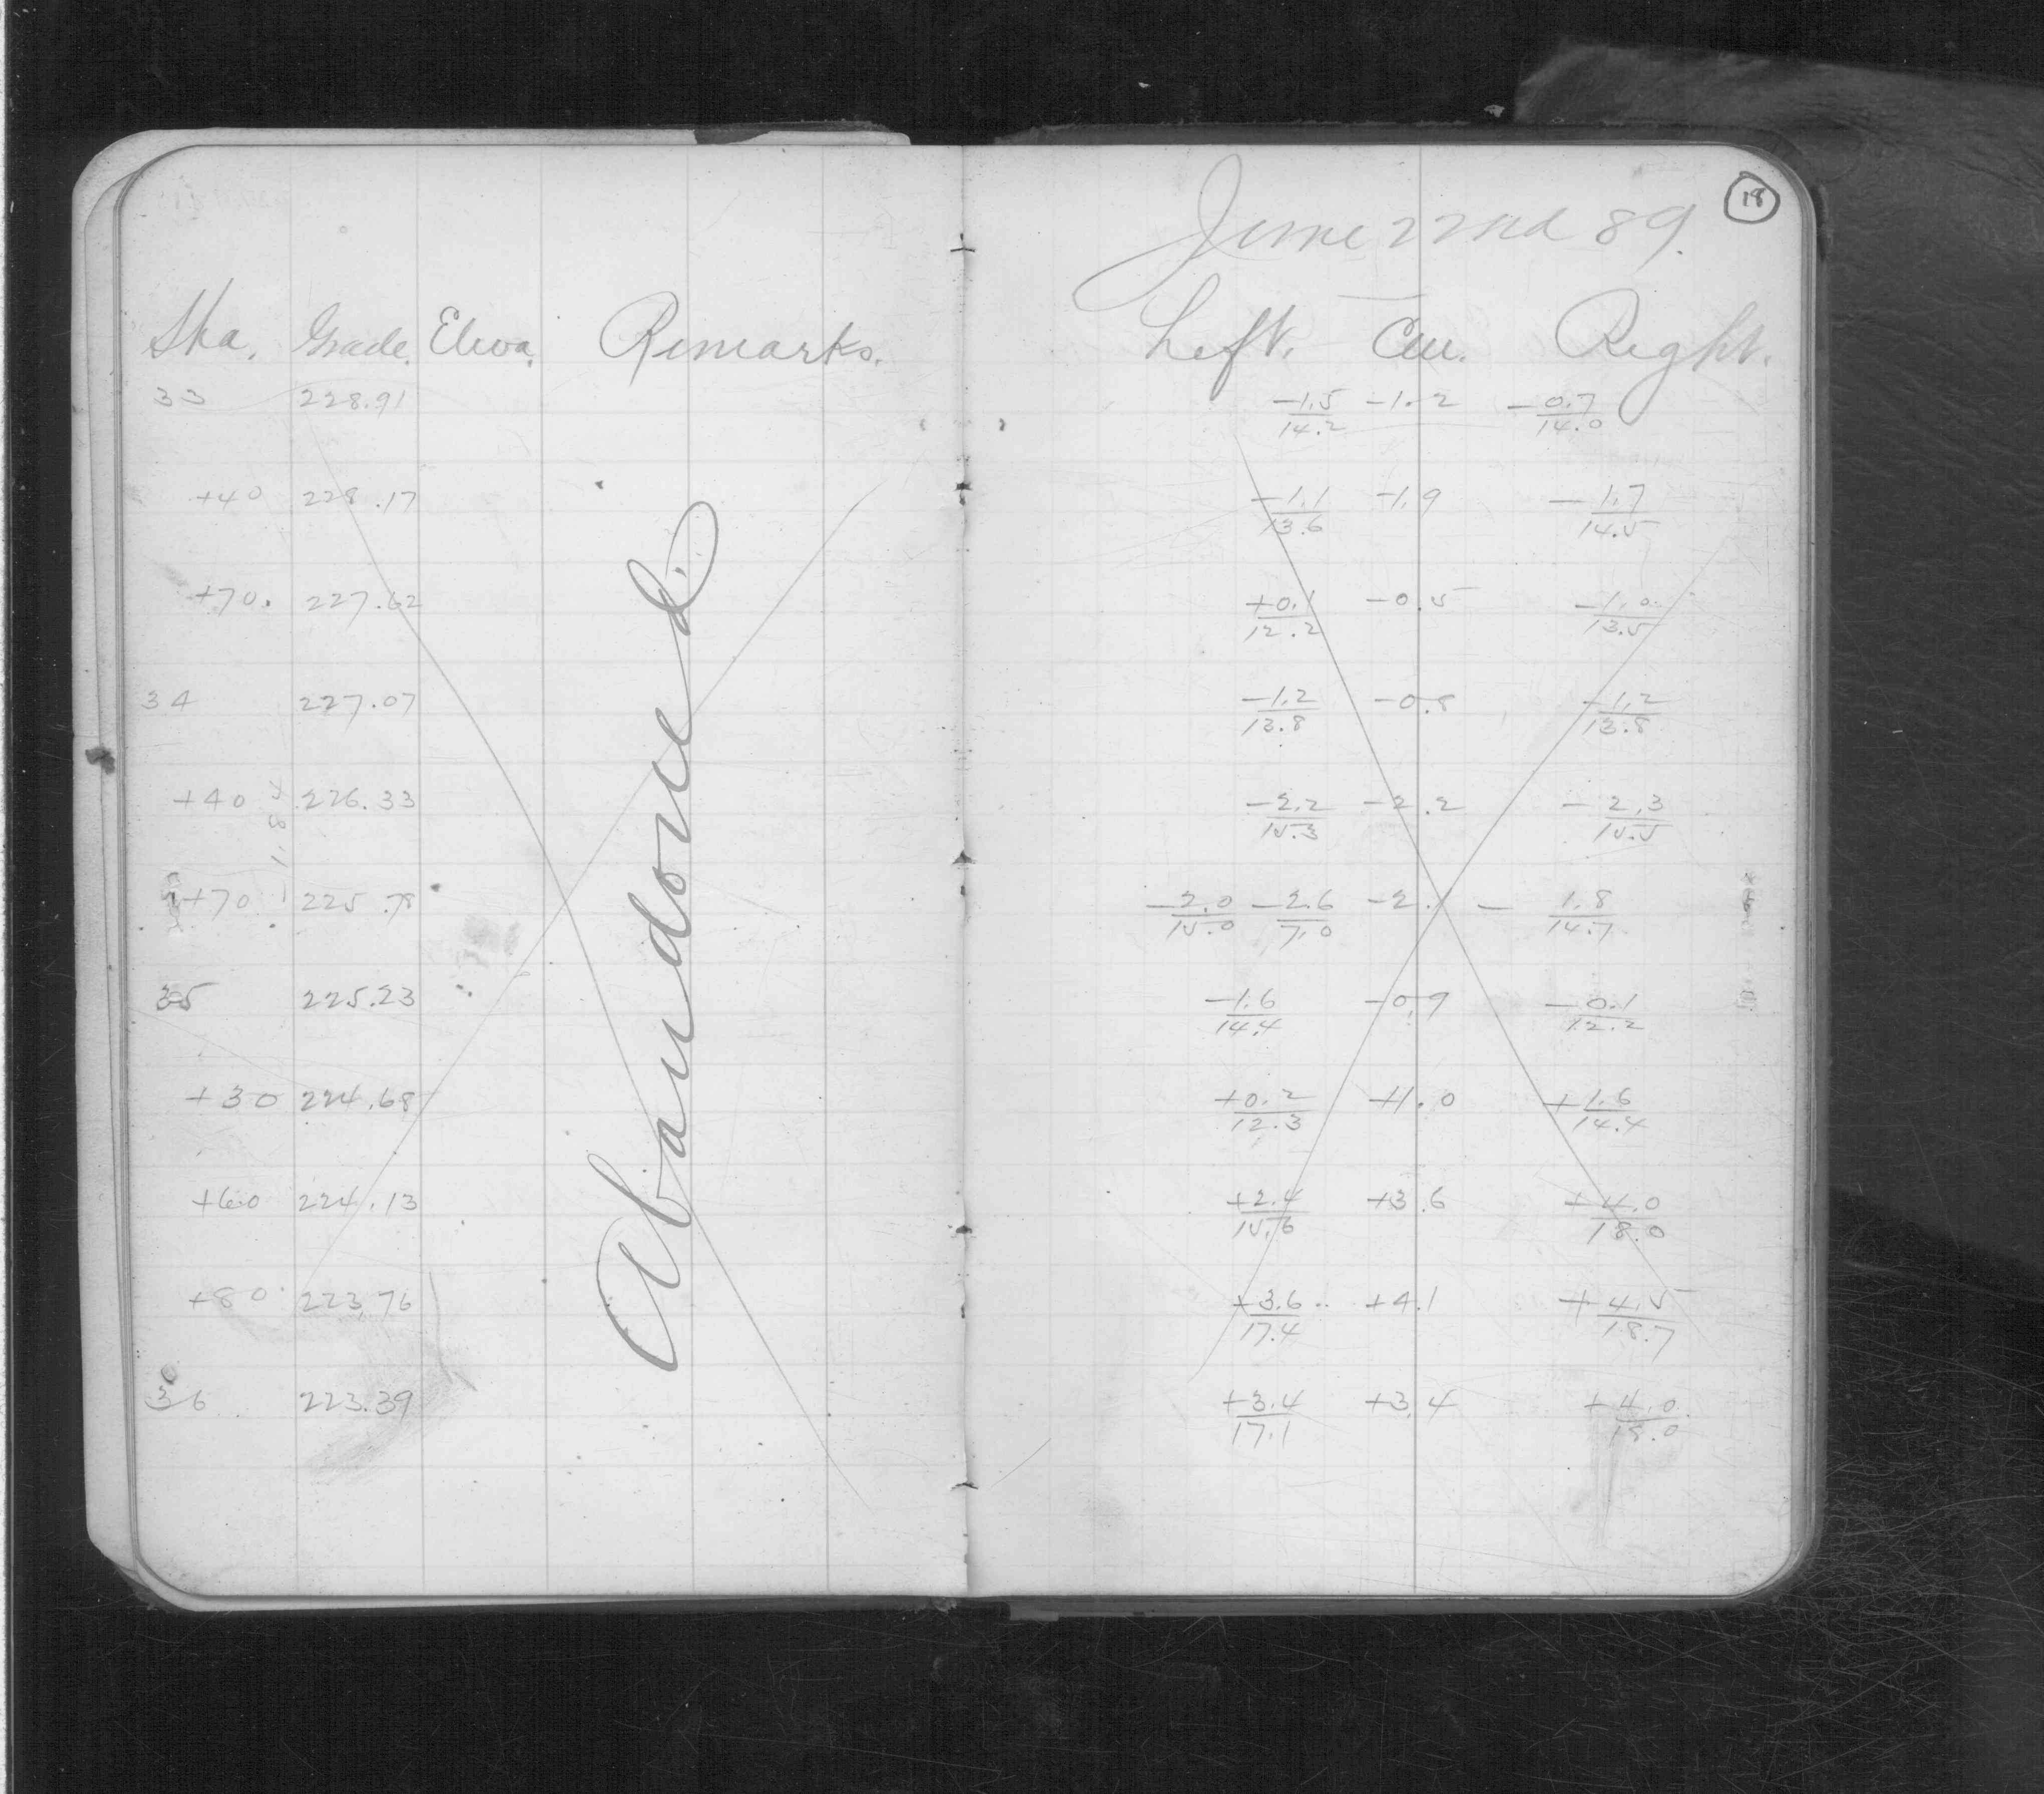 18
June 22nd 89.
Sta. Grade. Eleva. Remarks. Left. Cen. Right.
33 228.91 -1.5/14.2 -1.2 -0.7/14.0
+40 228.17 -1.1/13.6 -1.9 -1.7/14.5
+70. 227.62 +0.1/12.2 -0.5 -1.0/13.5
34 227.07 -1.2/13.8 -0.8 -1.2/13.8
+40 226.33 -2.2/15.3 -2.2 -2.3/15.5
+70 225.78 -2.0/15.0 -2.6/7.0 -2. -1.8/14.7
35 225.23 -1.6/14.4 -0.9 -0.1/12.2
+30 224.68 +0.2/12.3 +1.0 +1.6/14.4
+60 224.13 +2.4/15.6 +3.6 +4.0/18.0
+80 223.76 +3.6/17.4 +4.1 +4.5/18.7
36 223.39 +3.4/17.1 +3.4 +4.0/18.0
Abandoned.